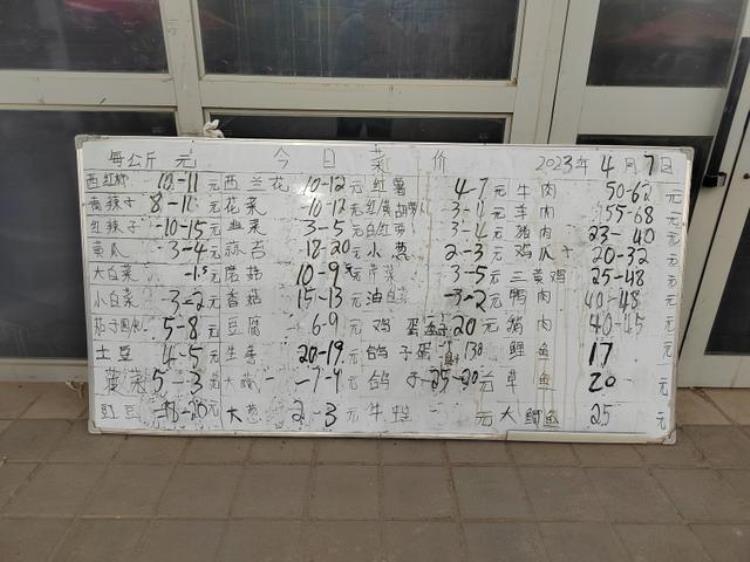 每公斤 元 今日菜价 2023年4月7日
西红柿 10-11元 西兰花 10-12元 红薯 4-7元 牛肉 50-62元
8-11元 花菜 10-12元 3-4元 羊肉 55-68元
红辣子 -10-15元 韭菜 3-5元 白红萝卜 3-4元 猪肉 23-40元
黄瓜 -3-4元 蒜苔 18-20元 小葱 2-3元 鸡爪 20-32元
大白菜 -1.5元 蘑菇 10-9元 芹菜 3-5元 三黄鸡 25-48元
小白菜 -3-2元 香菇 15-13元 油白菜 -3-2元 鸭肉 40-48元
茄子 5-8元 豆腐 6-9元 鸡蛋 20元 肉 40-45元
土豆 4-5元 生姜 20-19元 鸽子蛋 130 鲤鱼 17元
菠菜 5-3元 大蒜 -7-9元 鸽子 25-30元 草鱼 20元
豇豆 元 大葱 2-3元 牛 元 大鲫鱼 25元